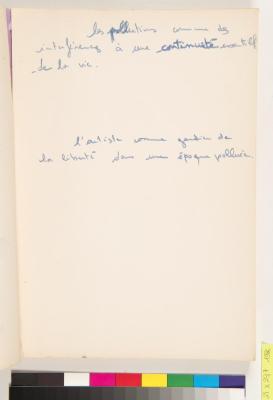 les pollutions comme des
interférences à une continuité
de la vie.
l'artiste comme gardien de
la liberté dans une époque polluée.